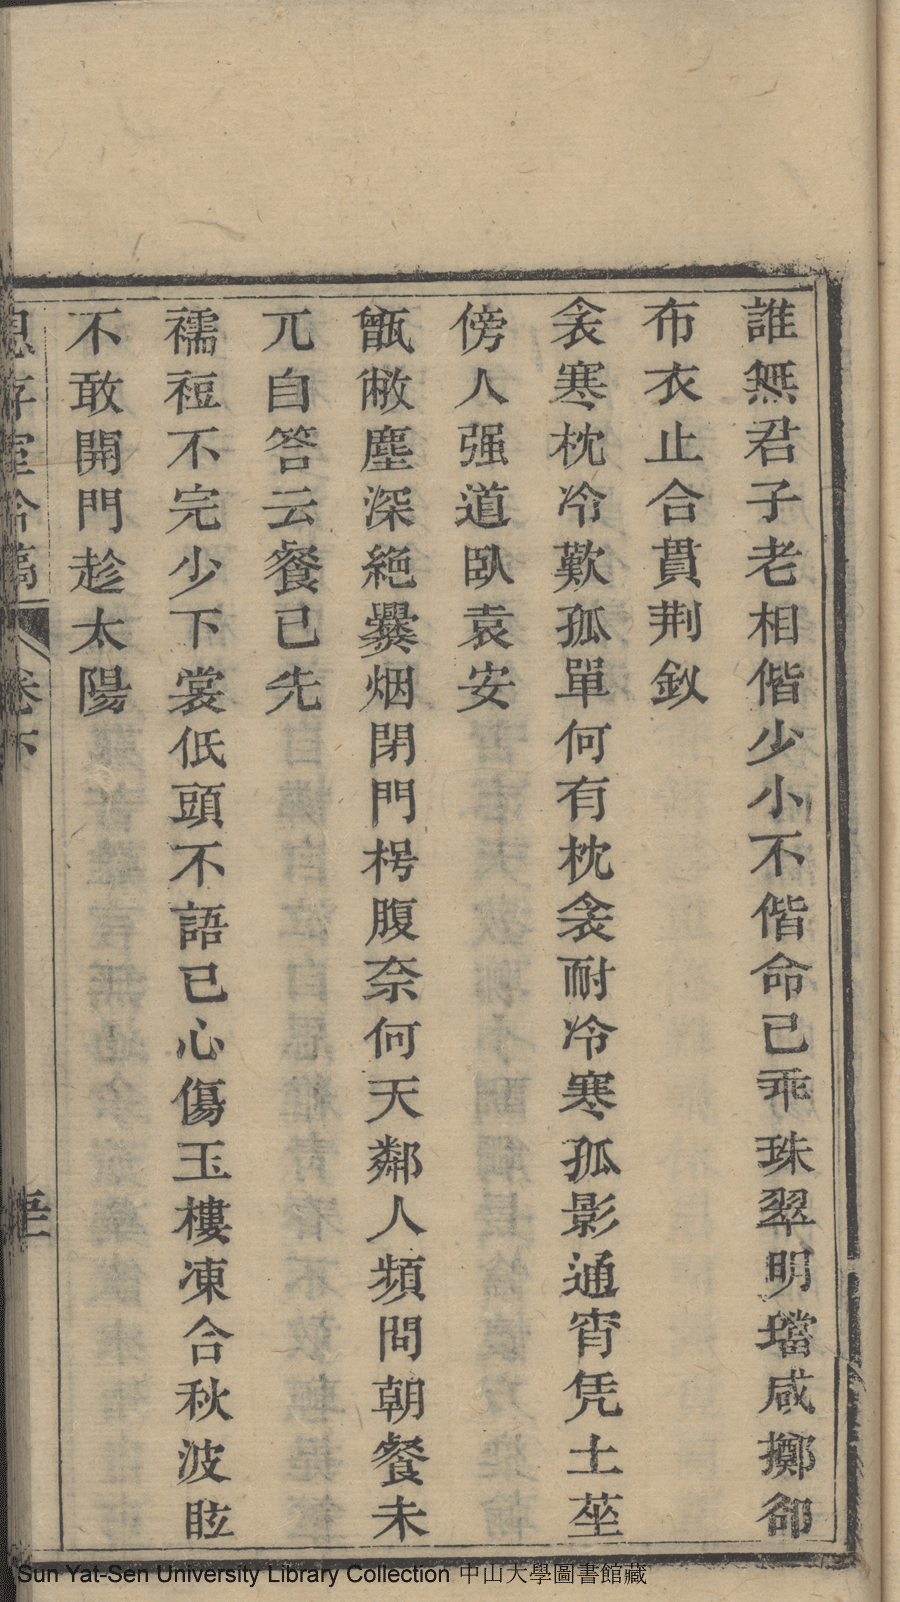 誰無君子老相偕少小不偕命已乖珠翠明璫咸擲卻
布衣止合貫荆釵
衾寒枕冷歎孤單何有枕衾耐冷寒孤影通宵凭土莝
傍人强道臥袁安
甑敝塵深絶爨烟閉門枵腹奈何天鄰人頻問朝餐未
兀自答云餐已先
襦裋不完少下裳低頭不語已心傷玉樓凍合秋波眩
不敢開門趁太陽
思存室吟稿 卷下
Sun Yat-Sen University Library Collection 中山大學圖書館藏